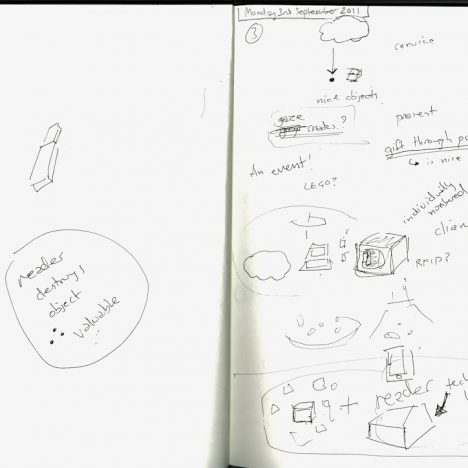 reader
destroys
object
∴ valuable
Monday 3rd September 2011
3
service
nice object
An event!
LEGO?
present
gift through po
↳ is nice
individually
numbered
clien
RFID?
+ reader
tec